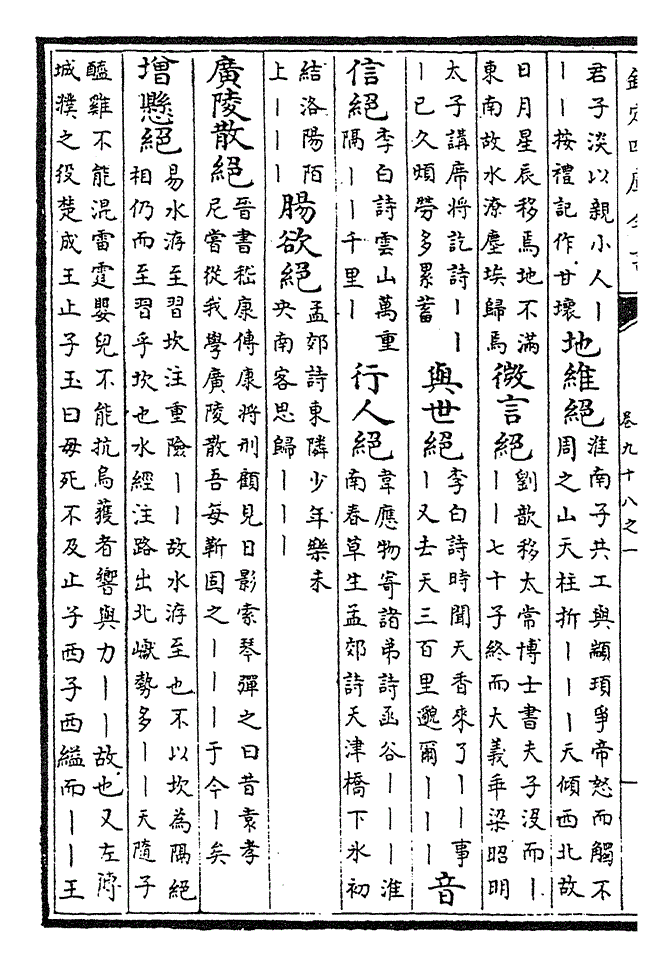 欽定四庫全書 卷九十八之一
君子淡以親小人丨
丨丨按禮記作甘壞
地維絕
淮南子共工與顓頊爭帝怒而觸不
周之山天柱折丨丨丨天傾西北故
日月星辰移焉地不滿
東南故水潦塵埃歸焉
微言絕
劉歆移太常博士書夫子沒而丨
丨丨七十子終而大義乖梁昭明
太子講席將訖詩丨丨
丨已久頻勞多累蓄
與世絕
李白詩時聞天香來了丨丨事
丨又去天三百里邈爾丨丨丨
音
信絕
李白詩雲山萬重
隔丨丨千里丨
行人絕
韋應物寄諸弟詩函谷丨丨丨淮
南春草生孟郊詩天津橋下氷初
結洛陽陌
上丨丨丨
腸欲絕
孟郊詩東隣少年樂未
央南客思歸丨丨丨
廣陵散絕
晉書嵇康傳康將刑顧見日影索琴彈之曰昔袁孝
尼嘗從我學廣陵散吾每靳固之丨丨丨于今丨矣
增懸絕
易水洊至習坎注重險丨丨故水洊至也不以坎為隔絕
相仍而至習乎坎也水經注路出北巘勢多丨丨天隨子
醯雞不能混雷霆嬰兒不能抗烏獲者響與力丨丨故也又左傳
城濮之役楚成王止子玉曰毋死不及止子西子西縊而丨丨王